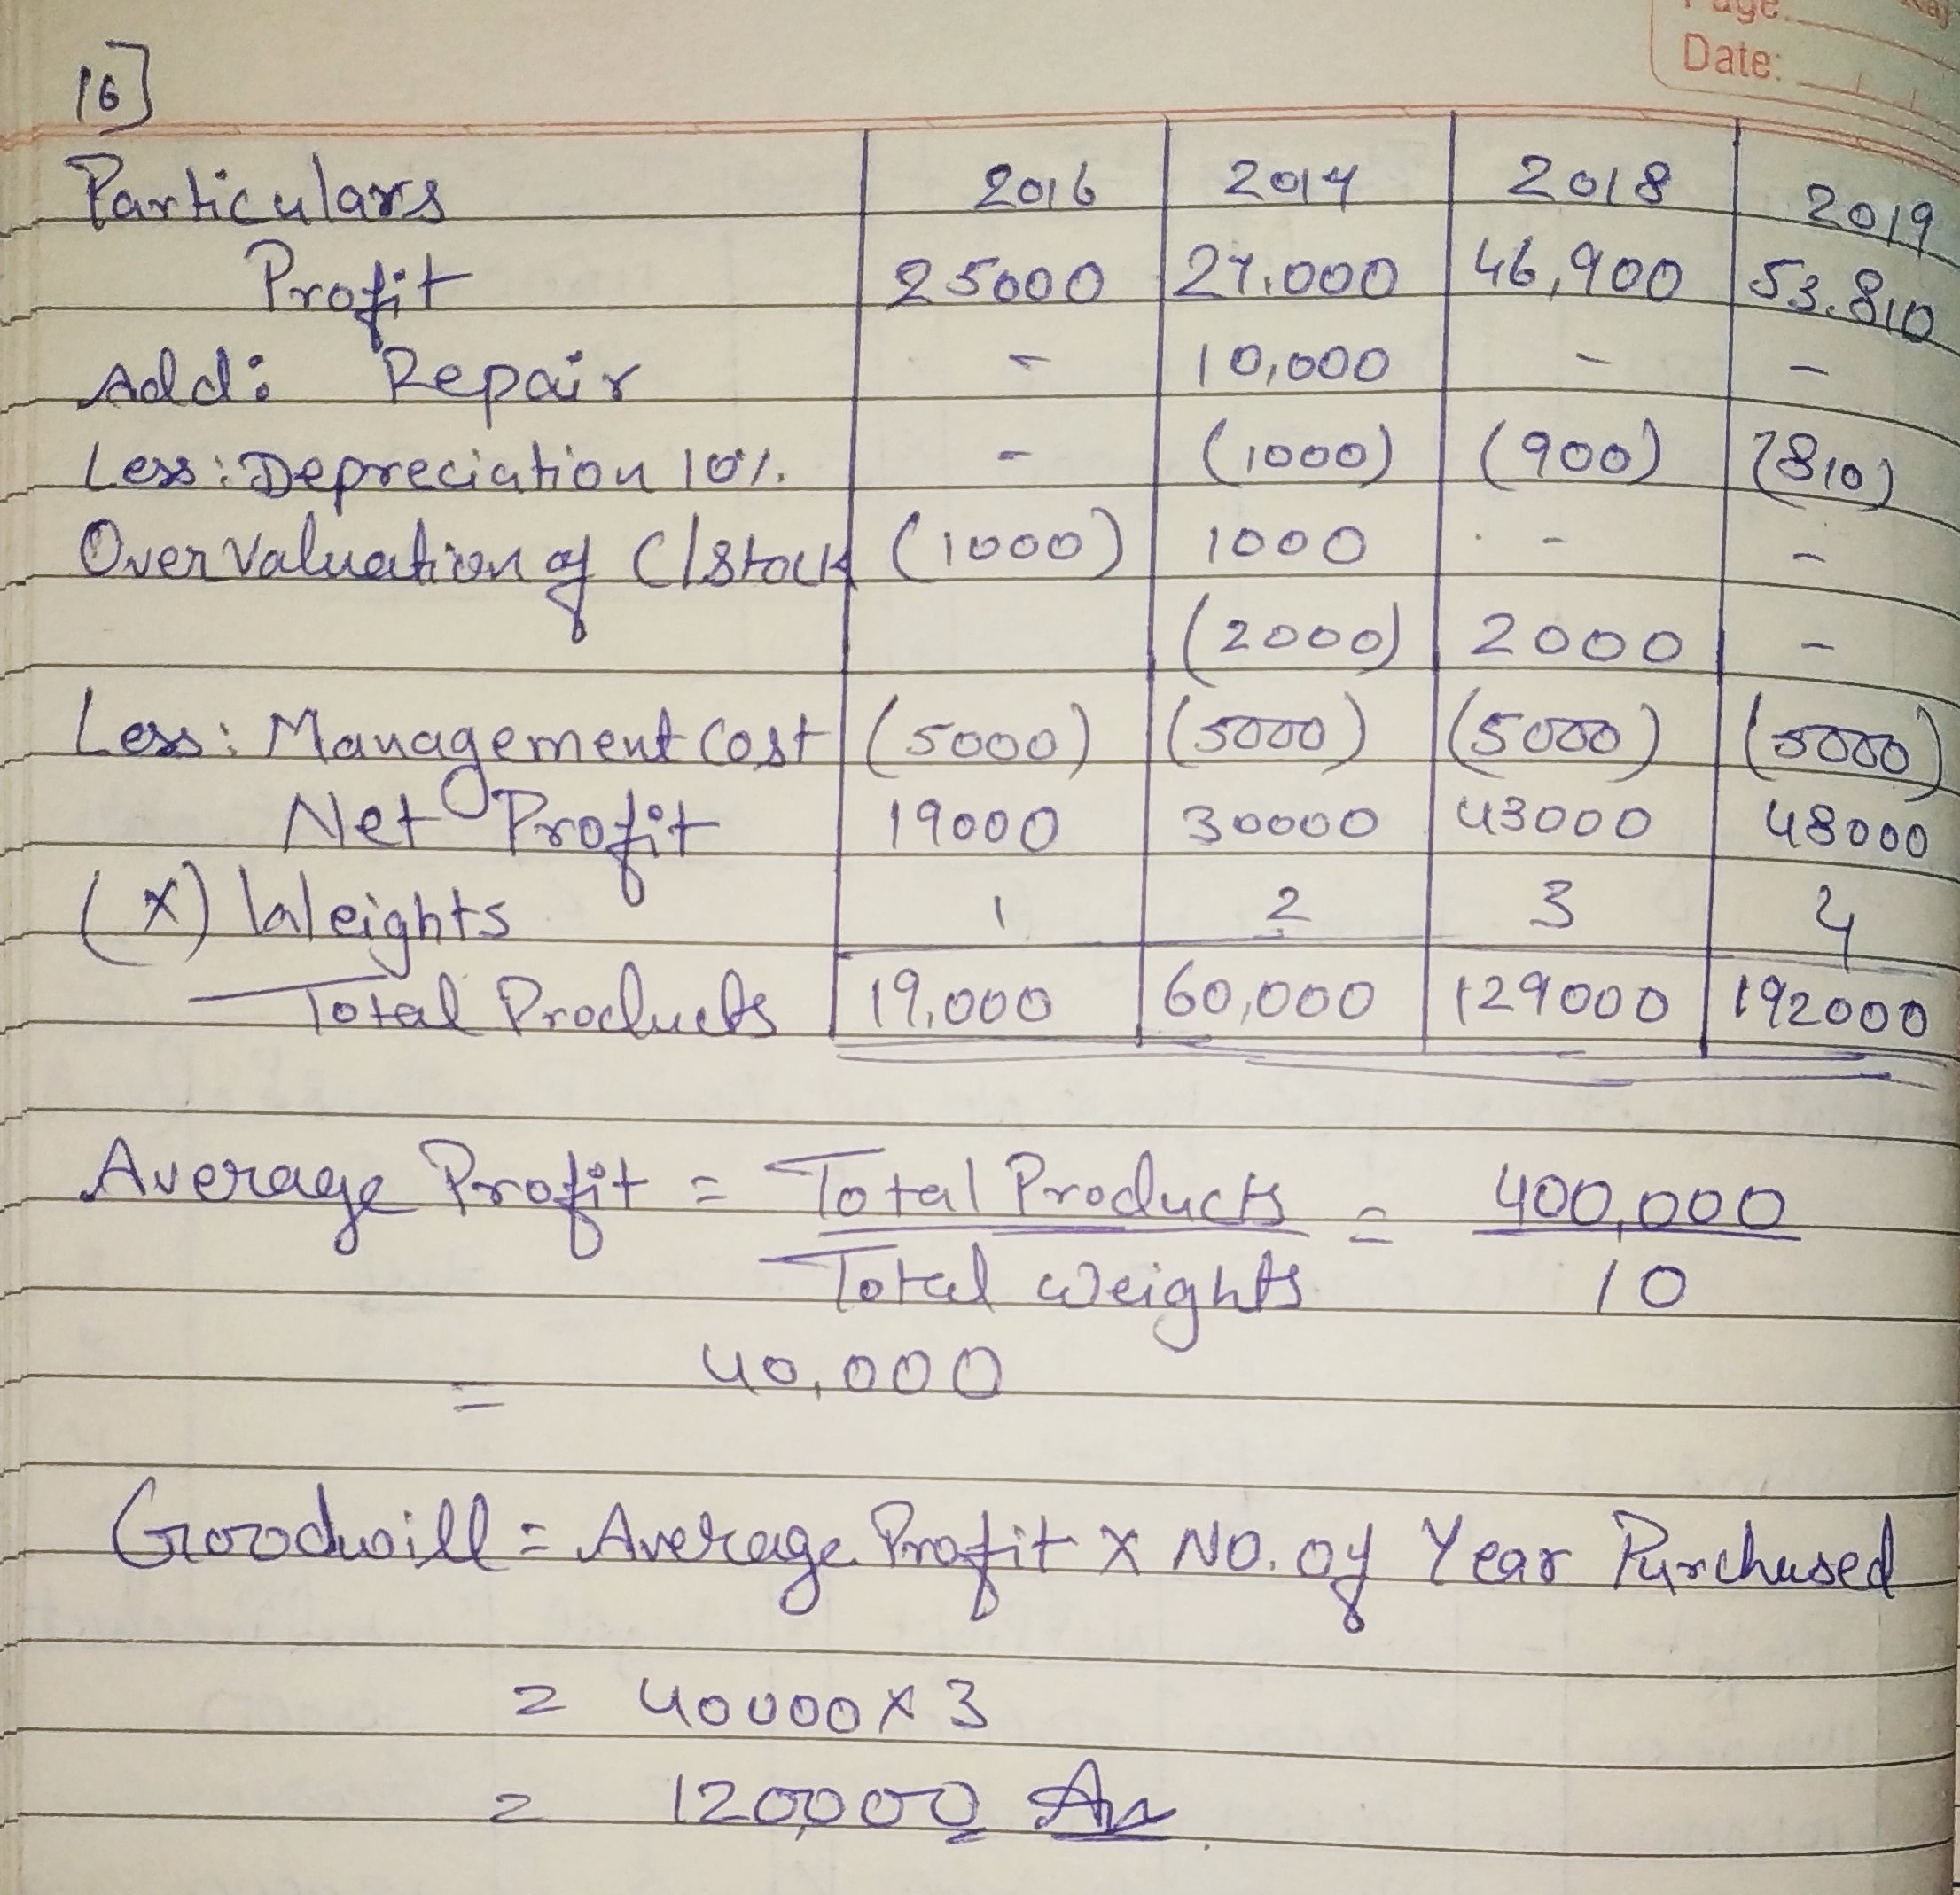 Page:
Date:
16]
Particulars 2016 2017 2018 2019
Profit 25000 27,000 46,900 53.810
Add: Repair - 10,000 - -
Less: Depreciation 10%. - (1000) (900) (810)
Over Valuation of C/Stock (1000) 1000 - -
(2000) 2000 -
Less: Management Cost (5000) (5000) (5000) (5000)
Net Profit 19000 30000 43000 48000
(X) Weights 1 2 3 4
Total Products 19,000 60,000 129000 192000
Average Profit = Total Products = 400,000
Total Weights 10
= 40,000
Goodwill = Average Profit X No. of Year Purchased
= 40000 X 3
= 120,000 Ans